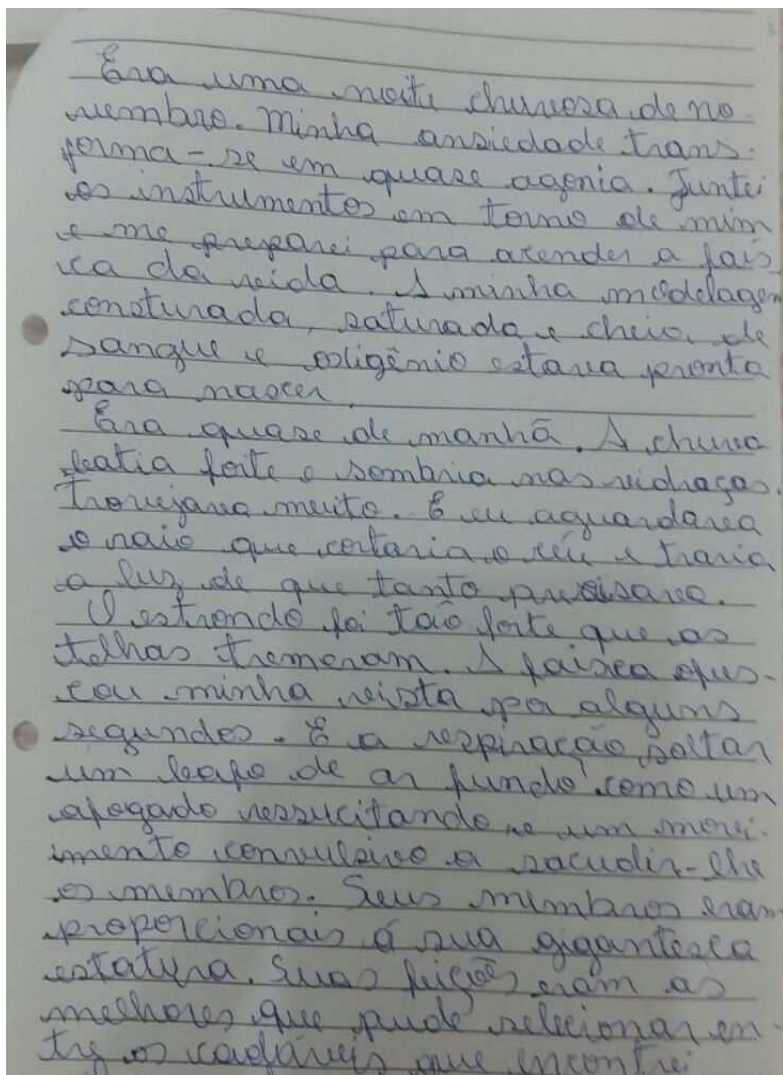 Era uma noite chuvosa de no
vembro. Minha ansiedade trans-
forma-se em quase agonia. Juntei
os instrumentos em torno de mim
e me preparei para acender a faís
ca da vida. A minha modelagem
consturada, saturada e cheia de
sangue e oxigênio estava pronta
para nascer.
Era quase de manhã. A chuva
batia forte e sombria nas vidraças.
Trovejava muito. E eu aguardava
o raio que cortaria o céu e traria
a luz de que tanto precisava.
O estrondo foi tão forte que as
telhas tremeram. A faísca ofus-
cou minha vista por alguns
segundos. E a respiração soltar
um bafo de ar fundo como um
afogado ressucitando, e um movi-
mento convulsivo a sacudir-lhe
os membros. Seus membros eram
proporcionais á sua gigantesca
estatura. Suas feições eram as
melhores que pude selecionar en
tre os cadáveis que encontrei